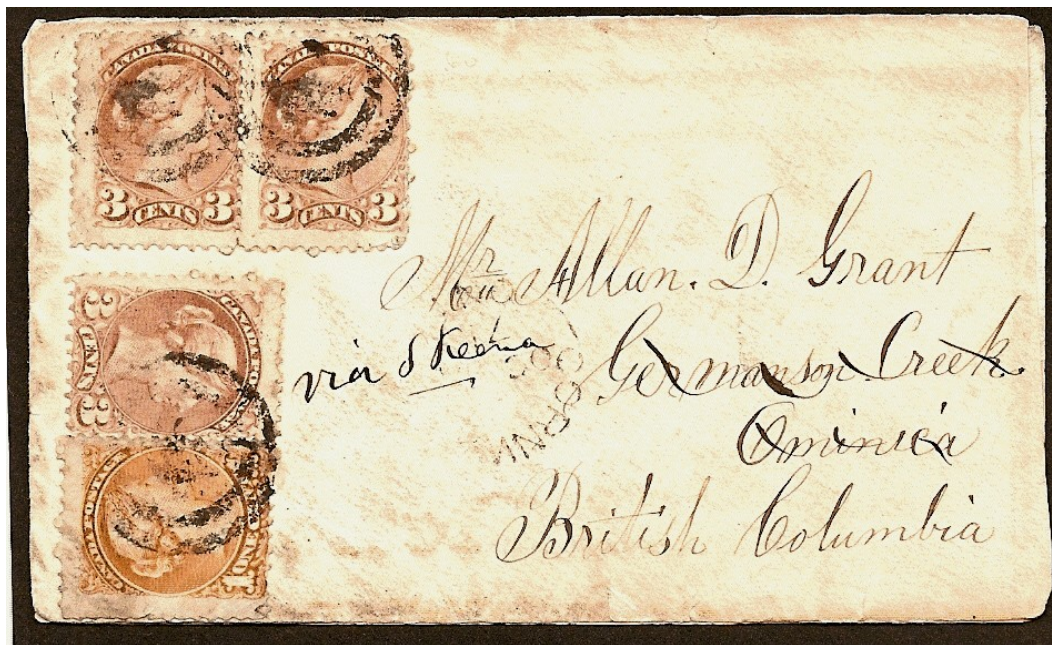 CANADA POSTAGE
3 CENTS 3
CANADA POSTAGE
3 CENTS 3
3 CENTS 3
CANADA POSTAGE
Mr Allan. D. Grant
via Skeena
Germanson Creek
Ominica
British Columbia